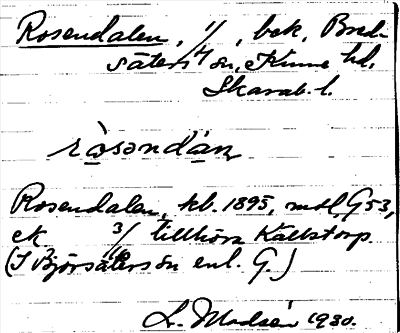 Rosendalen, 1/4, bek, Bred-
säters sn, Kinne hd,
Skarab. l.
rosendän
Rosendalen, kb. 1895, mtl, G 53,
ek 3/16 tillhöra Källstorp.
(I Björsäters sn enl. G.)
L. Modéen 1930.